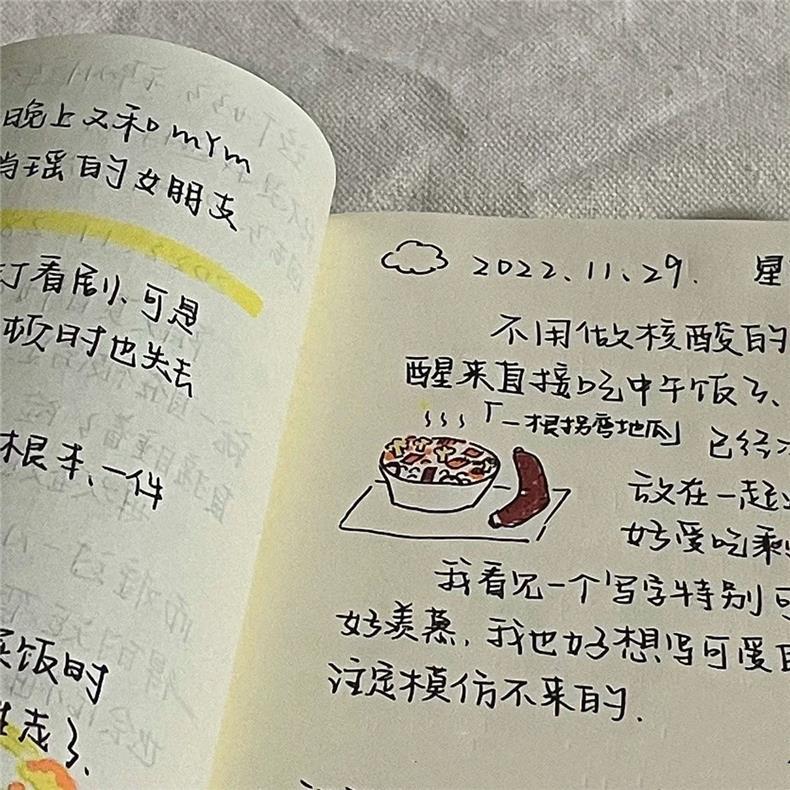 晚上又和mYm
瑶的女朋友
看剧、可是
板时也失去
根本、一件
饭时
走了、
2022.11.29. 星
不用做核酸的
醒来直接吃中午饭了、
「一根拐弯地瓜」
已经
放在一起
好爱吃剩
我看见一个写字特别可
好羡慕，我也好想写可爱
注定模仿不来的.